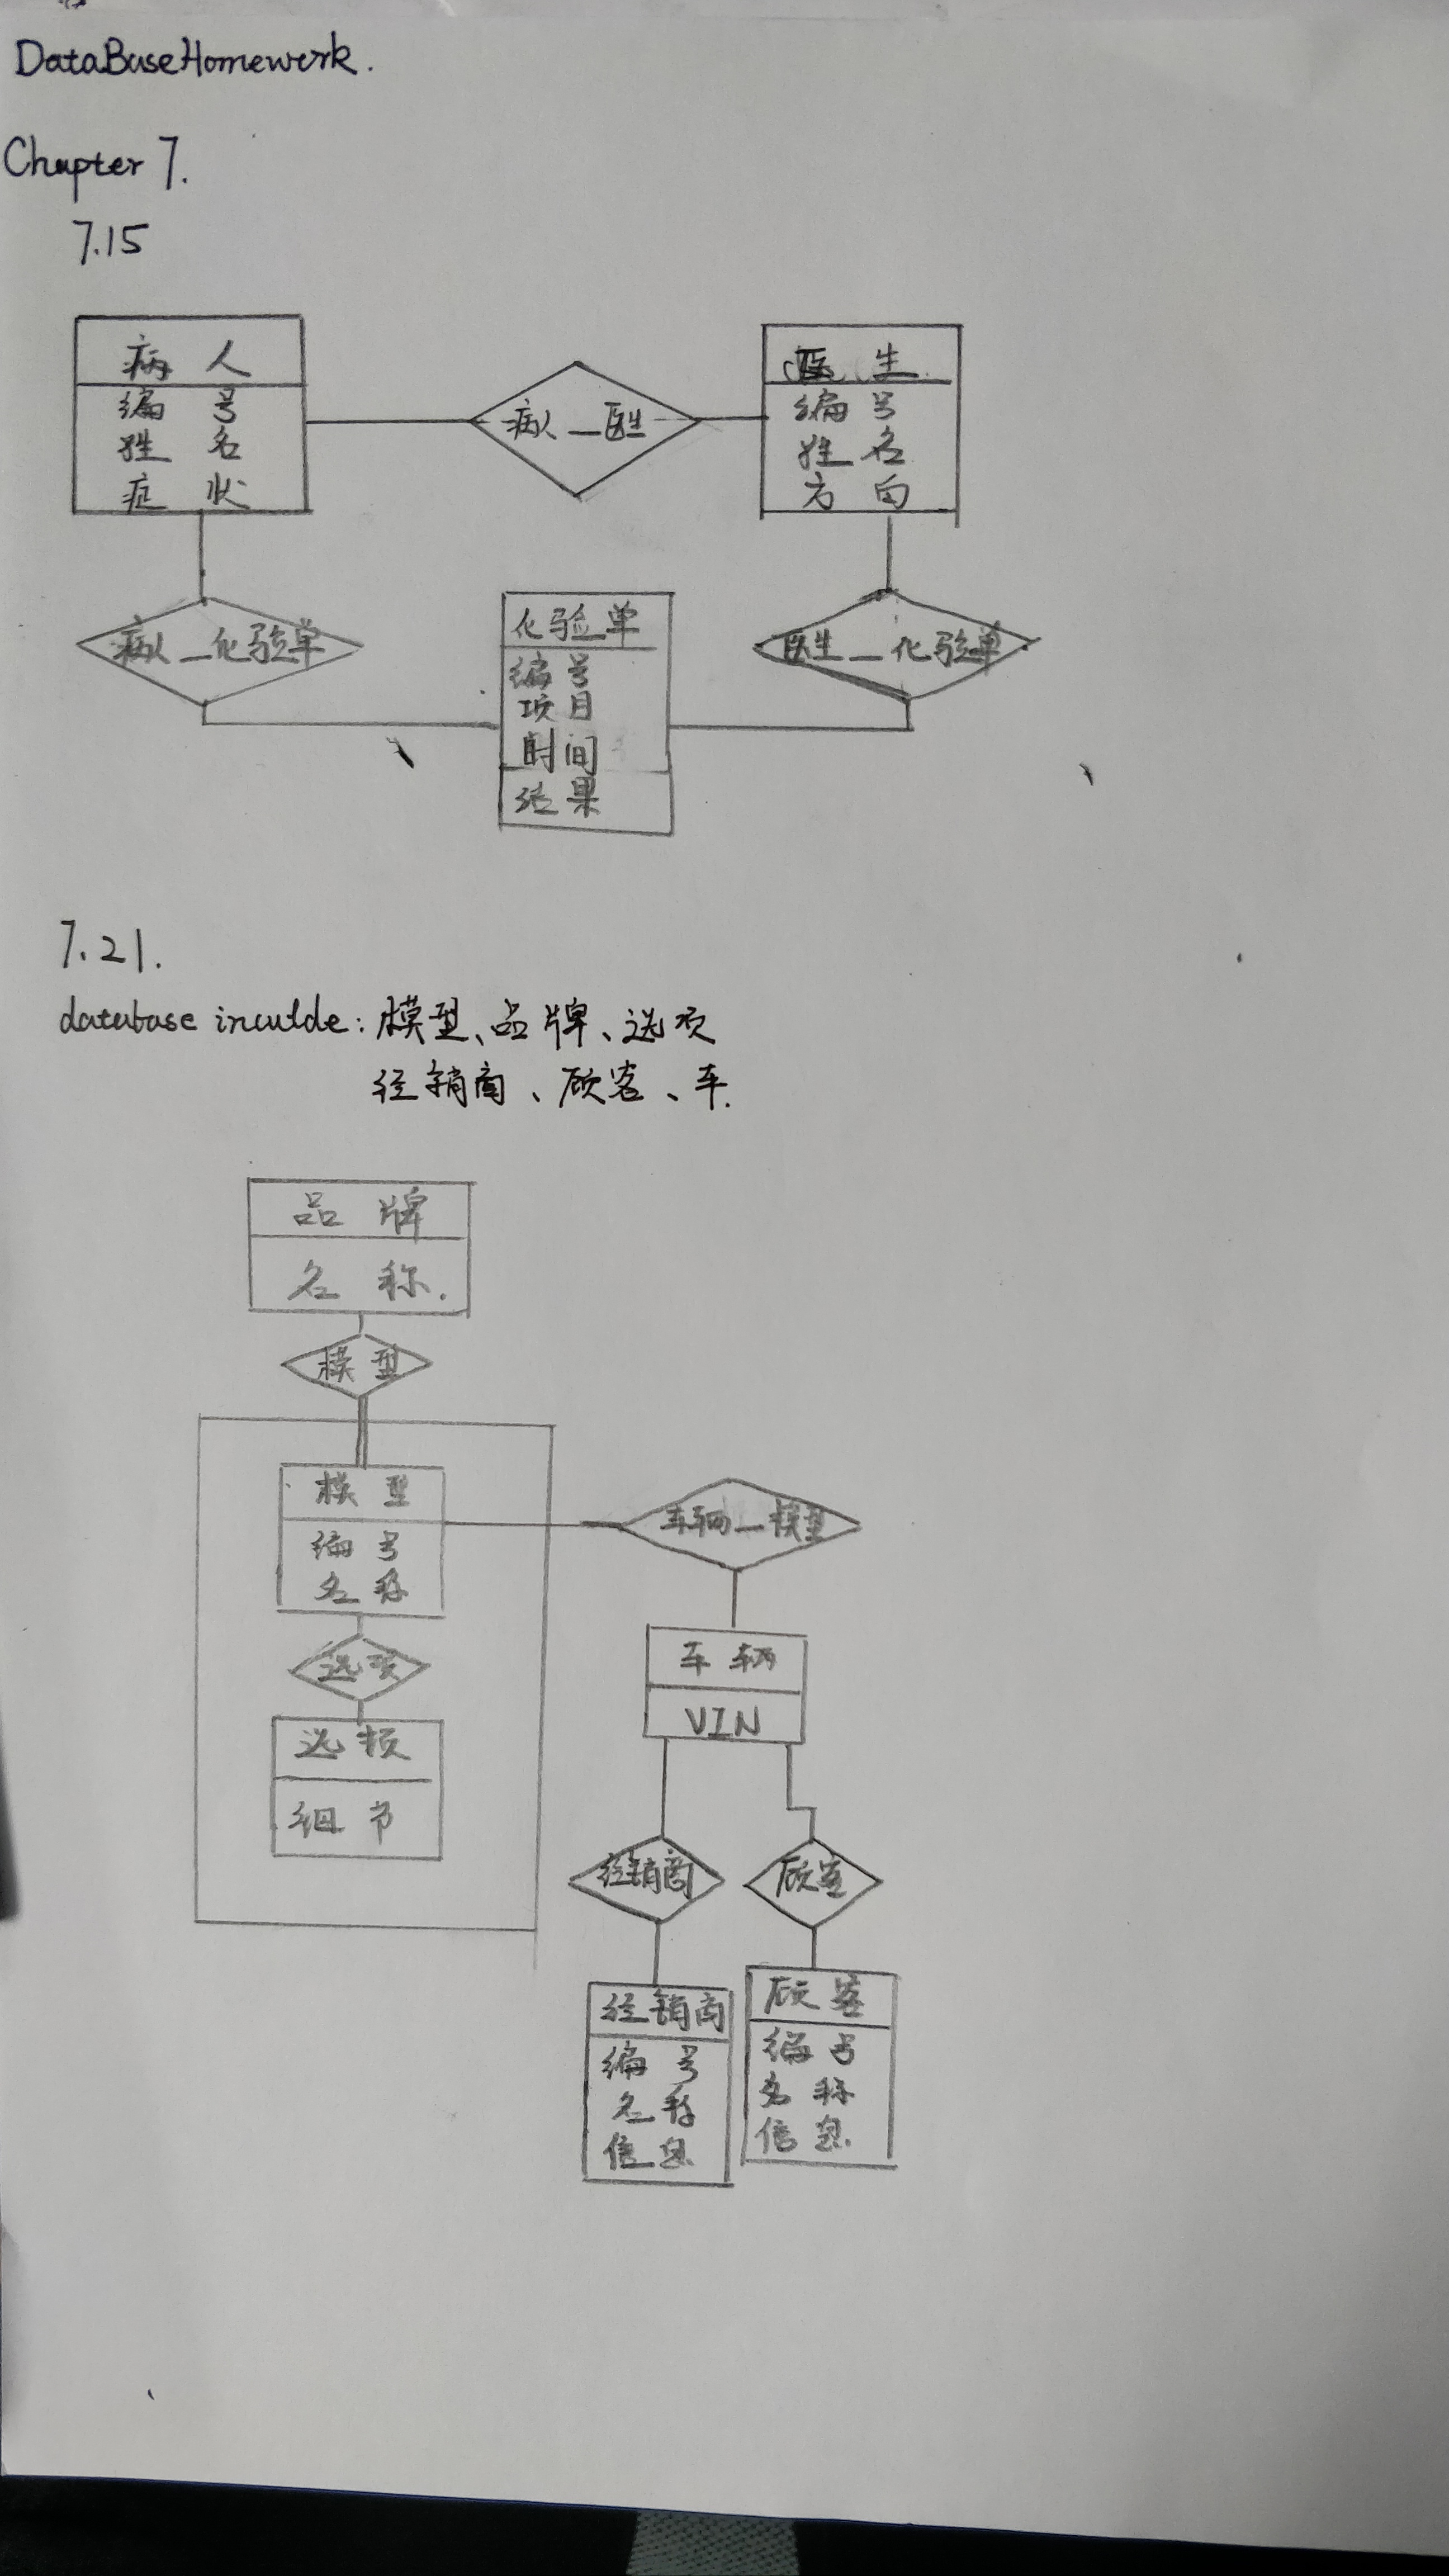 DataBaseHomework.
Chapter 7.
7.15
病人
编号
姓名
症状
病人_医生
医生
编号
姓名
方向
病人_化验单
化验单
编号
项目
时间
结果
医生_化验单
7.21.
database inculde: 模型、品牌、选项
经销商、顾客、车.
品牌
名称.
模型
模型
编号
名称
车辆_模型
选项
选项
细节
车辆
VIN
经销商
顾客
经销商
编号
名称
信息
顾客
编号
名称
信息